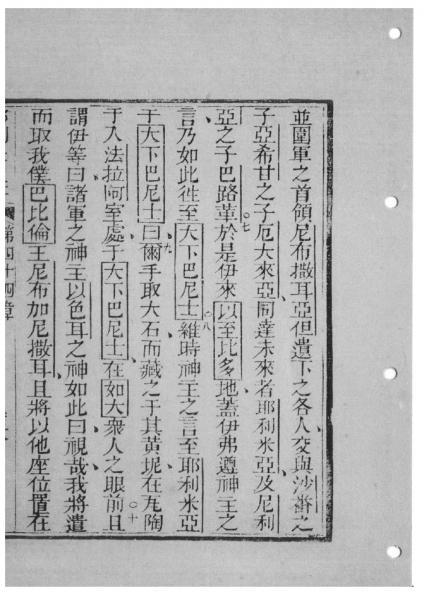 並圍軍之首領尼布撒耳亞但遺下之各人交與沙番之
子亞希甘之子厄大來亞同達未來者耶利米亞及尼利
亞之子巴路葦○七於是伊來以至比多地蓋伊弗遵神主之
言乃如此徃至大下巴尼士○八維時神主之言至耶利米亞
于大下巴尼士曰九爾手取大石而藏之于其黃坭在瓦陶
于入法拉阿室處于大下巴尼士在如大衆人之眼前○十且
謂伊等曰諸軍之神主以色耳之神如此曰視哉我將遣
而取我僕巴比倫王尼布加尼撒耳且將以他座位置在
第四十四章